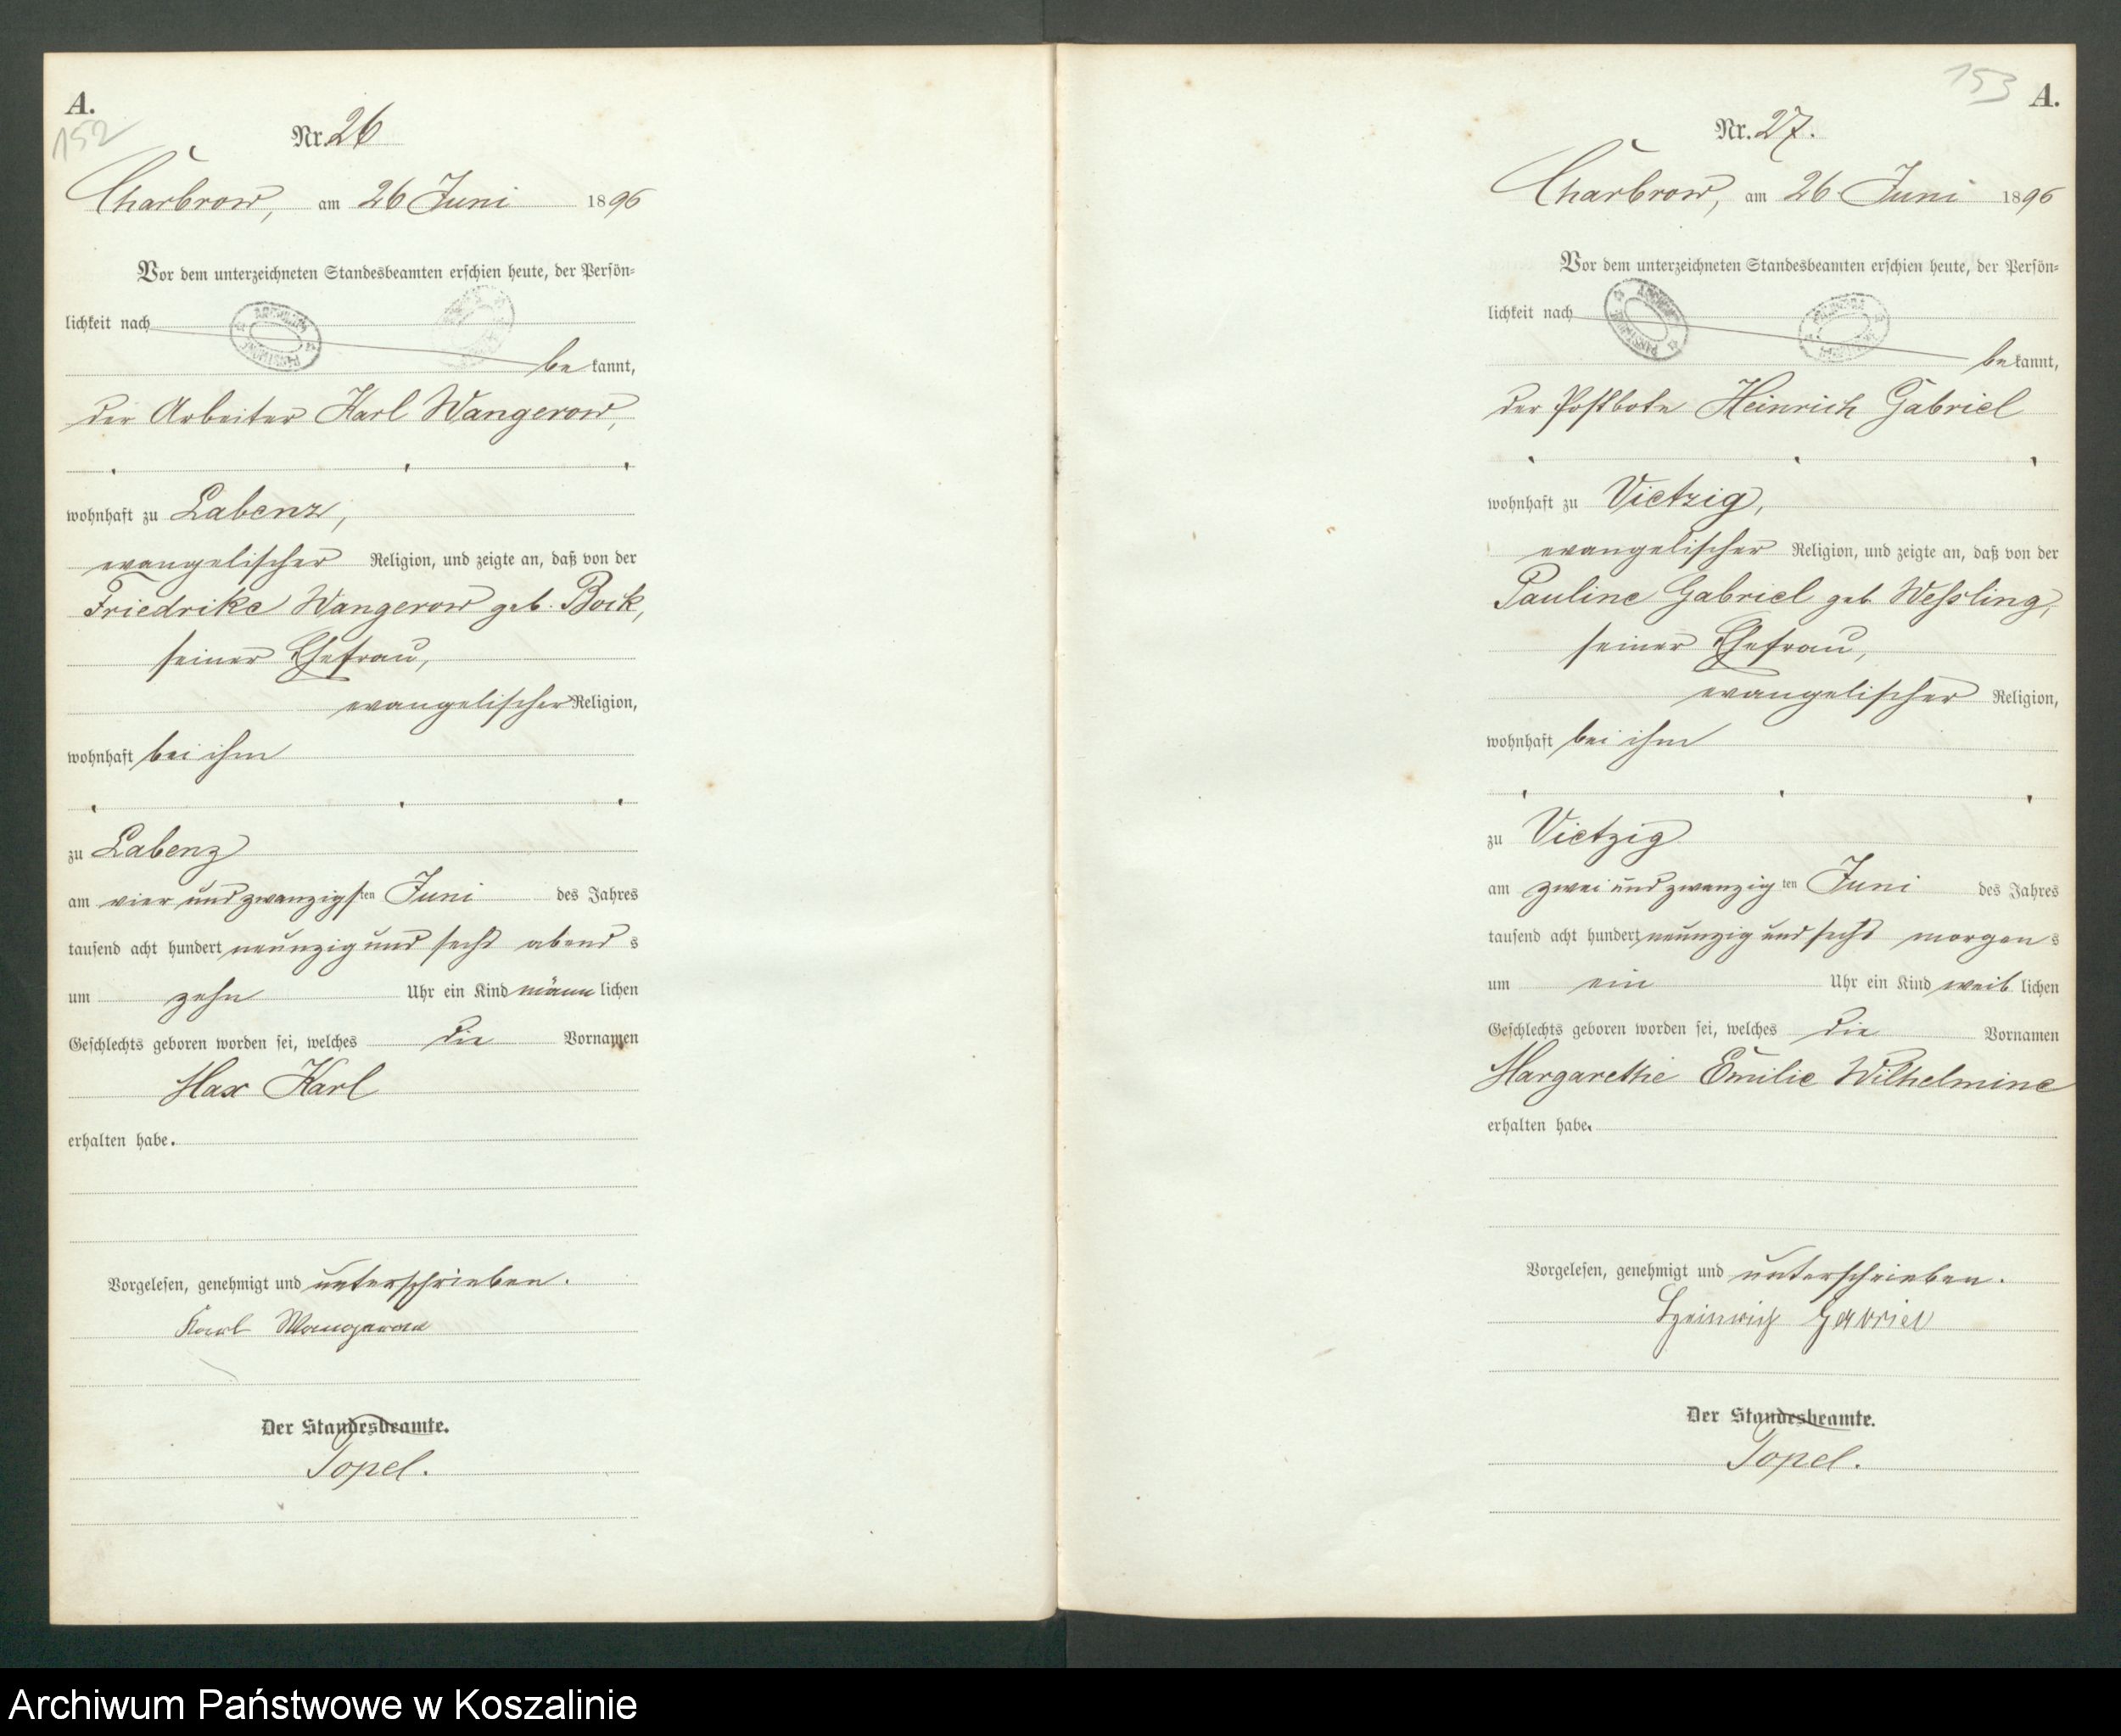 A.
152
Nr. 26
Charbrow, am 26 Juni 1896
Vor dem unterzeichneten Standesbeamten erschien heute, der Persön-
lichkeit nach
be kannt,
der Arbeiter Karl Wangerow,
wohnhaft zu Labenz,
evangelischer Religion, und zeigte an, daß von der
Friedrike Wangerow geb. Bock,
seiner Ehefrau,
evangelischer Religion,
wohnhaft bei ihm
zu Labenz
am vier und zwanzigsten Juni des Jahres
tausend acht hundert neunzig und sechs abend s
um zehn Uhr ein Kind männ lichen
Geschlechts geboren worden sei, welches die Vornamen
Max Karl
erhalten habe.
Vorgelesen, genehmigt und unterschrieben.
Karl Wangerow
Der Standesbeamte.
Topel.
153
A.
Nr. 27.
Charbrow, am 26 Juni 1896
Vor dem unterzeichneten Standesbeamten erschien heute, der Persön-
lichkeit nach
be kannt,
der Postbote Heinrich Gabriel
wohnhaft zu Vietzig,
evangelischer Religion, und zeigte an, daß von der
Pauline Gabriel geb Weßling,
seiner Ehefrau,
evangelischer Religion,
wohnhaft bei ihm
zu Vietzig
am zwei und zwanzig ten Juni des Jahres
tausend acht hundert neunzig und sechs morgen s
um ein Uhr ein Kind weib lichen
Geschlechts geboren worden sei, welches die Vornamen
Margarethe Emilie Wilhelmine
erhalten habe.
Vorgelesen, genehmigt und unterschrieben.
Heinrich Gabriel
Der Standesbeamte.
Topel.
Archiwum Państwowe w Koszalinie